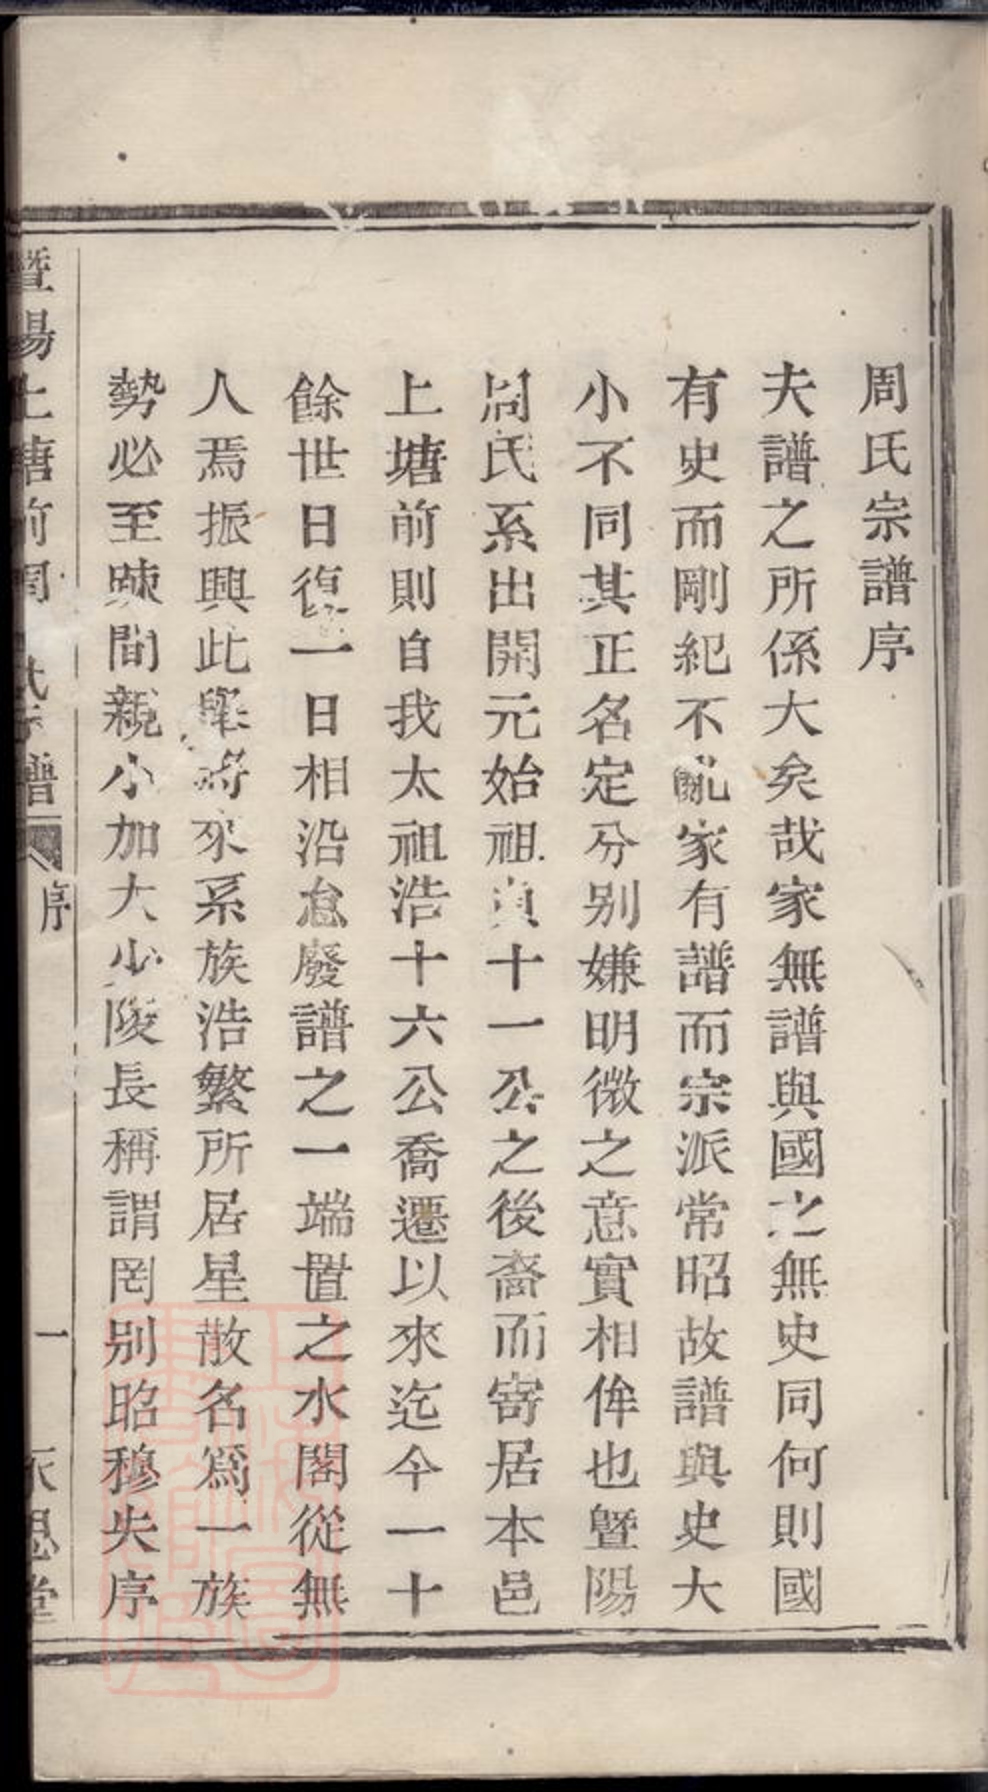 周氏宗譜序
夫譜之所係大矣哉家無譜與國之無史同何則國
有史而剛紀不亂家有譜而宗派常昭故譜與史大
小不同其正名定分别嫌明微之意實相侔也暨陽
周氏系出開元始祖貞十一公之後裔而寄居本邑
上塘前則自我太祖浩十六公喬遷以來迄今一十
餘世日復一日相沿怠廢譜之一端置之水閣從無
人焉振興此舉將來系族浩繁所居星散名爲一族
勢必至踈間親小加大少陵長稱謂罔别昭穆失序
暨陽上塘前周氏宗譜 序 一 永思堂
上海圖書館藏